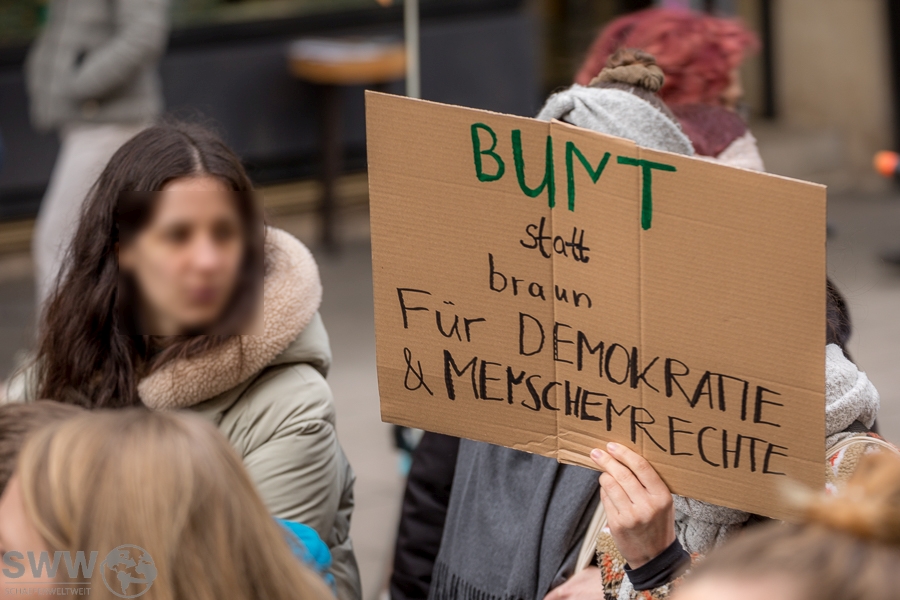 BUNT
statt
braun
Für DEMOKRATIE
& MENSCHENRECHTE
SWW